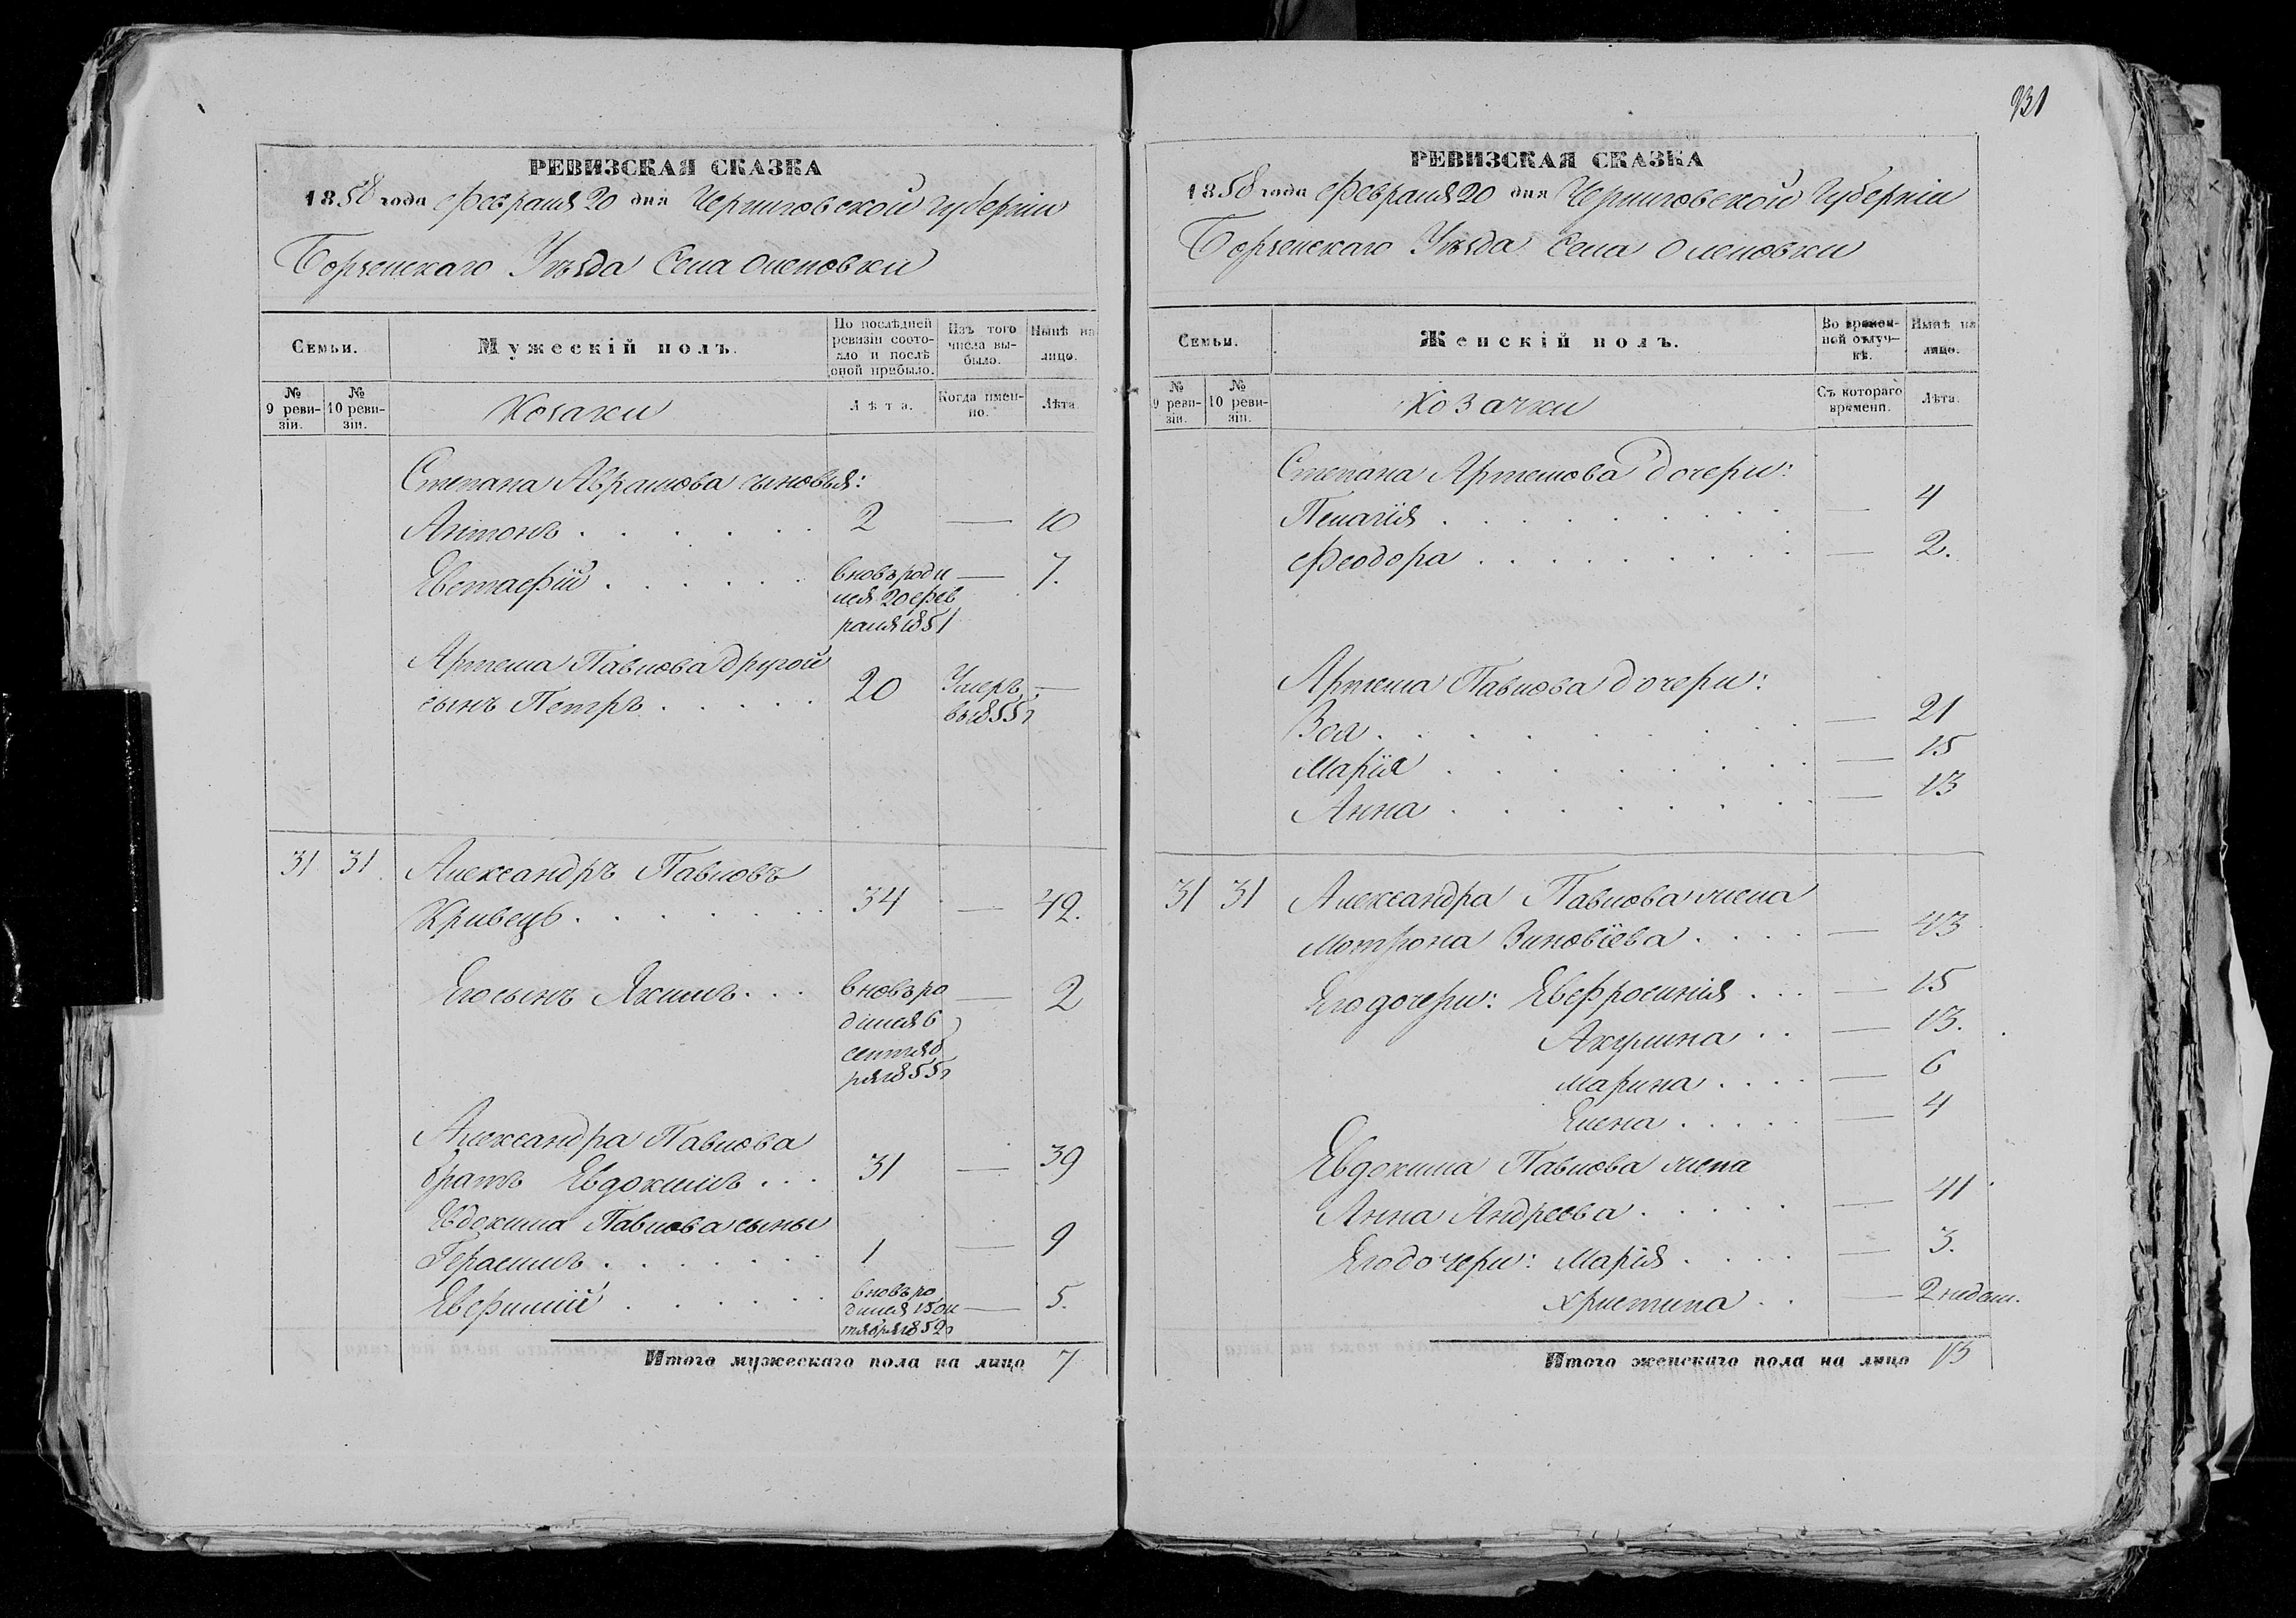 931
РЕВИЗСКАЯ СКАЗКА
1858 года Февраля 20 дня Черниговской Губерніи
Борзенскаго Уѣзда Села Оленовки
Семьи.
Мужескій полъ.
По послѣдней ревизіи состояло и послѣ оной прибыло.
Изъ того числа выбыло.
Нынѣ на лицо.
№ 9 ревизіи.
№ 10 ревизіи.
Козаки
Лѣта.
Когда именно.
Лѣта.
Степана Авраамова сыновья:
Антонъ . . . . . 2 — 10
Евстафій . . . . . вновь роди — 7.
лся 20 фев
раля 1851
Артема Павлова другой
сынъ Петръ . . . . . 20 Умеръ —
въ 1855 г
31 31. Александръ Павловъ
Кривецъ . . . . . . . 34 — 42.
Его сынъ Якимъ . . . вновь ро — 2
дился 6
сентяб
ря 1855 г
Александра Павлова
братъ Евдокимъ . . . 31 — 39
Евдокима Павлова сыны
Герасимъ . . . . . . . 1 — 9
Евфимій . . . . . . вновь ро
дился 15 ок — 5.
тября 1852 г
Итого мужескаго пола на лицо 7
РЕВИЗСКАЯ СКАЗКА
1858 года Февраля 20 дня Черниговской Губерніи
Борзенскаго Уѣзда Села Оленовки
Семьи.
Женскій полъ.
Во временной отлучкѣ.
Нынѣ на лицо.
№ 9 ревизіи.
№ 10 ревизіи.
Козачки
Съ котораго времени.
Лѣта.
Степана Артемова дочери:
Пелагія . . . . . . . . . — 4
Феодора . . . . . . . . — 2.
Артема Павлова дочери:
Зоя . . . . . . . . . — 21
Марія . . . . . . . . — 15
Анна . . . . . . . . — 13
31 31 Александра Павлова жена
Мотрона Зиновіева . . . . — 43
Его дочери: Евфросинія . . . — 15
Акулина . . — 13.
Марина . . . . — 6
Елена . . . . . — 4
Евдокима Павлова жена
Анна Андреева . . . . . — 41
Его дочери: Марія . . . . — 3.
Христина . . — 2 недѣли.
Итого женскаго пола на лицо 13